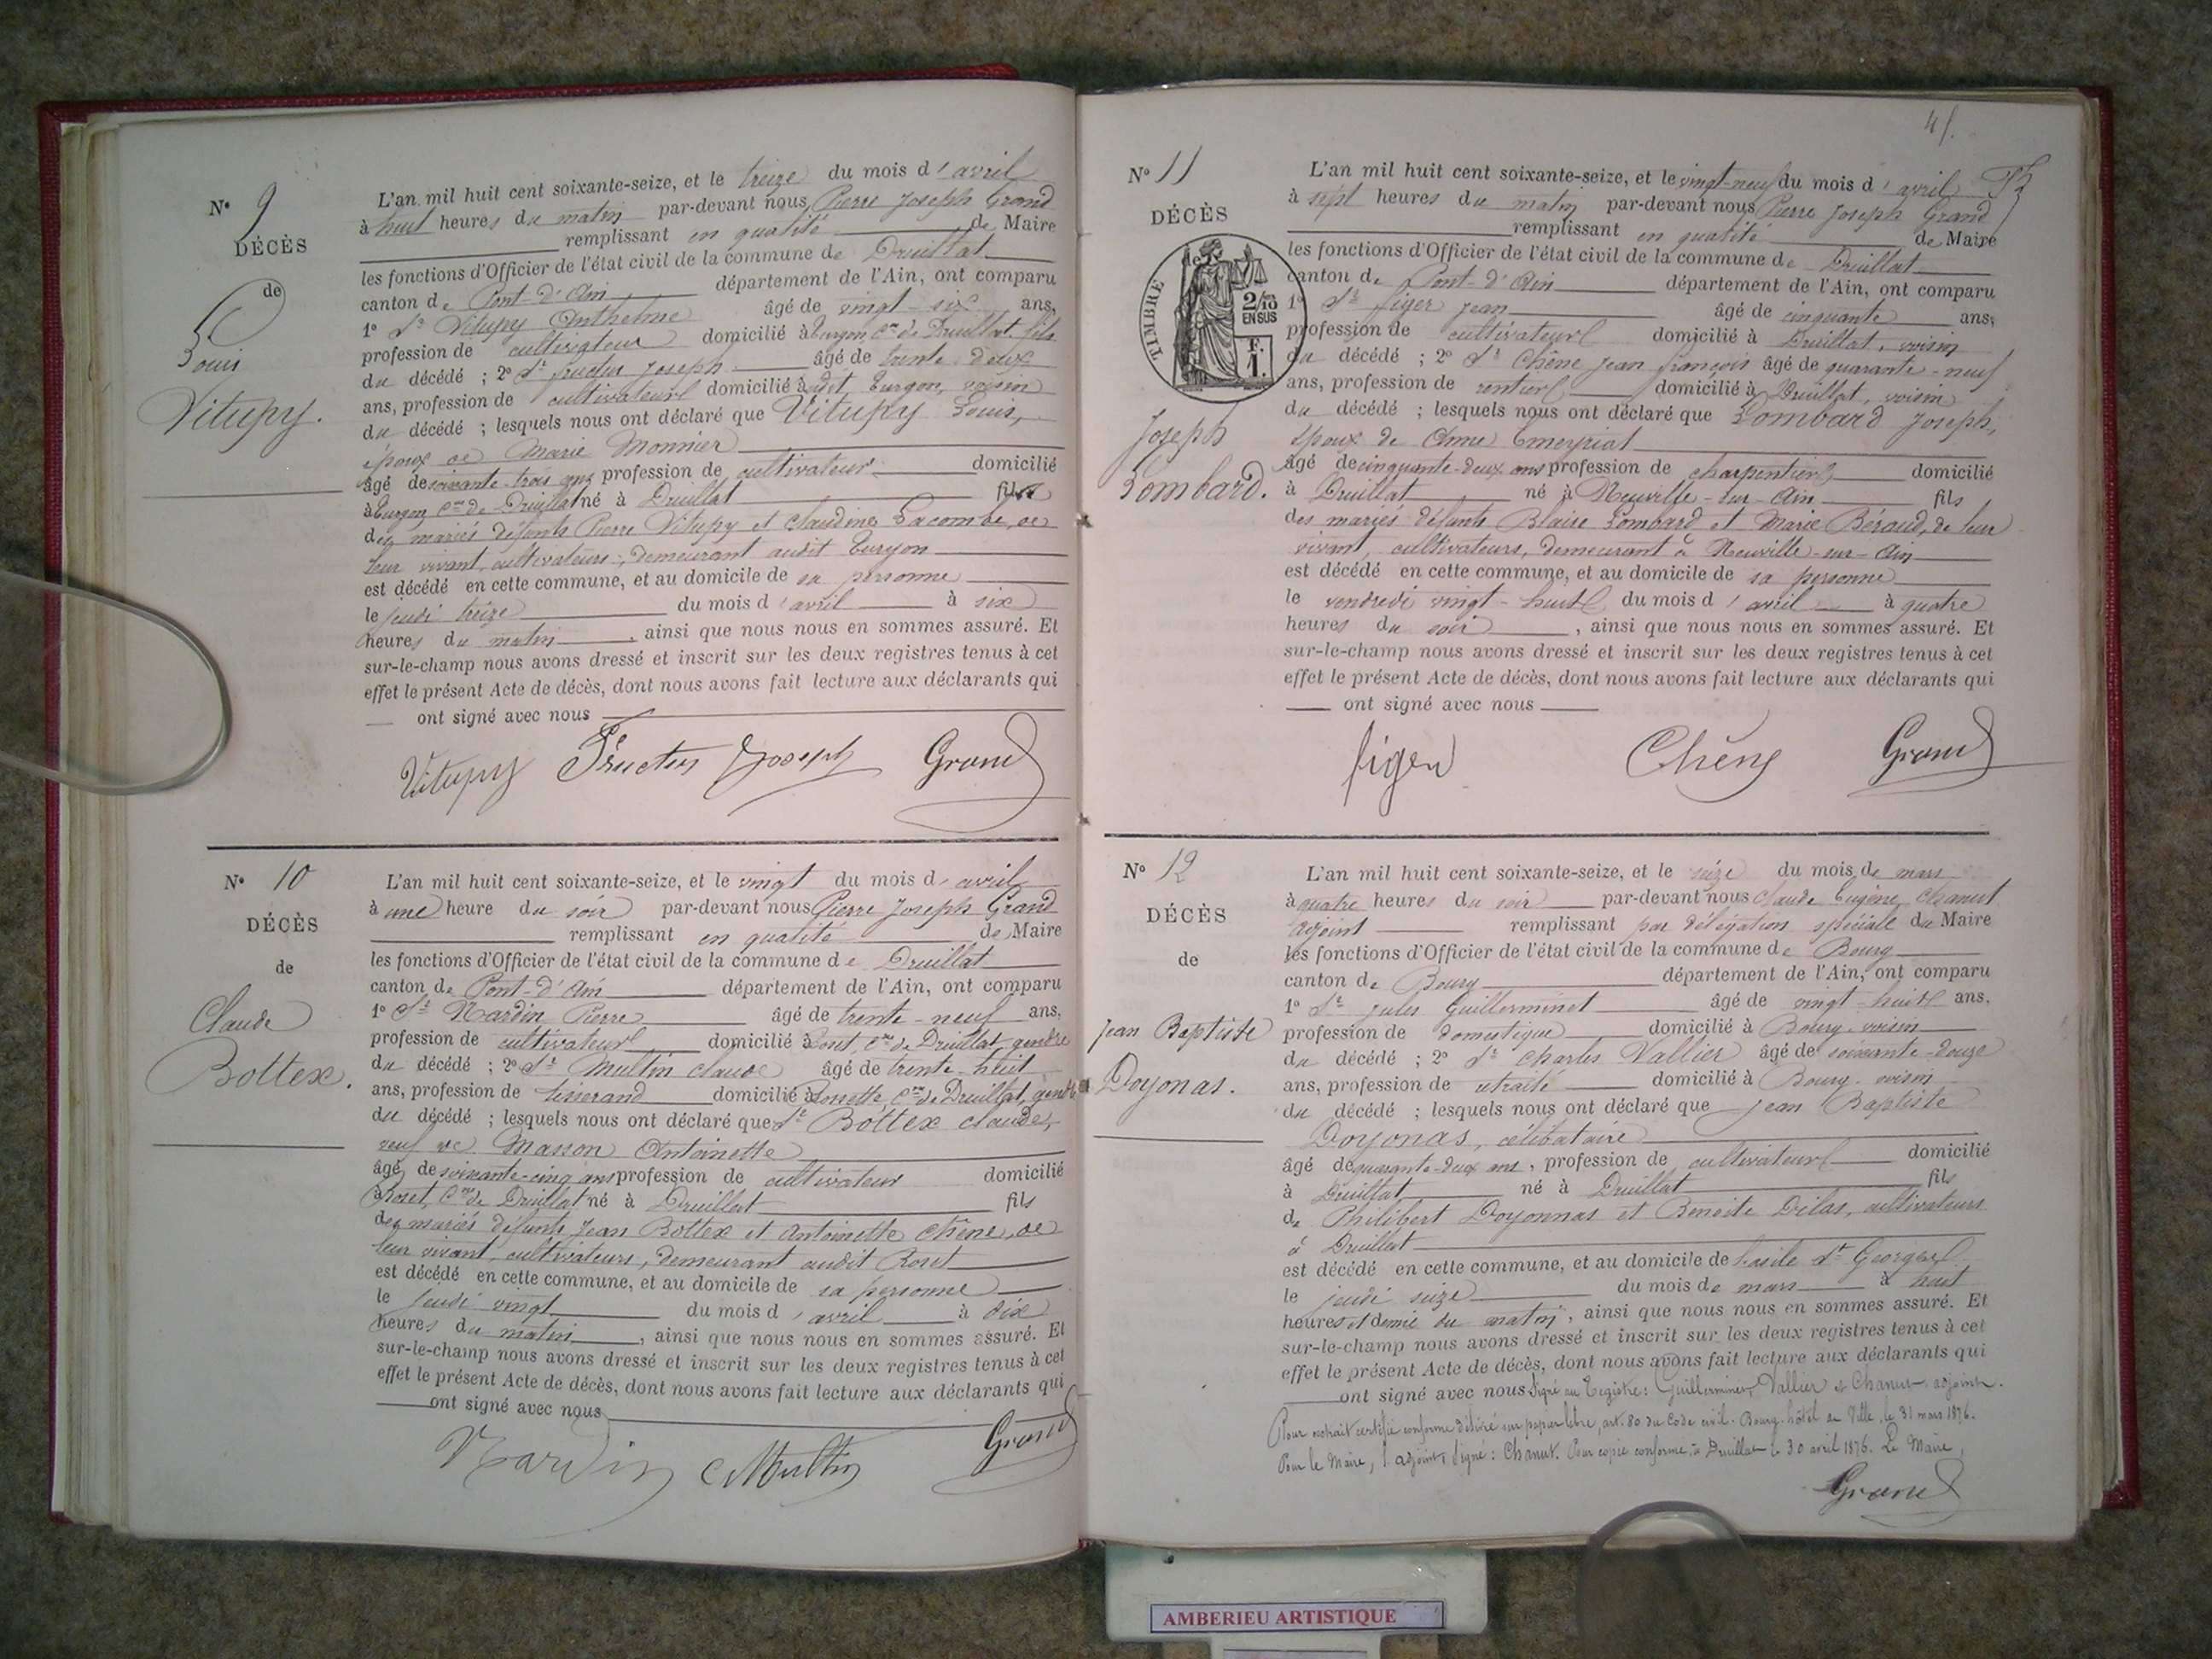 N° 9
DÉCÈS
de
Louis
Vitupy.
L'an mil huit cent soixante-seize, et le treize du mois d'avril
à huit heures du matin par-devant nous, Pierre Joseph Grand
remplissant en qualité de Maire
les fonctions d'Officier de l'état civil de la commune de Druillat
canton de Pont-d'Ain département de l'Ain, ont comparu
1° Sr Vitupy Anthelme âgé de vingt-six ans,
profession de cultivateur domicilié à Turgon, Cne de Druillat, fils
du décédé ; 2° Sr Joseph âgé de trente-deux
ans, profession de cultivateur domicilié audit Turgon, voisin
du décédé ; lesquels nous ont déclaré que Vitupy Louis,
époux de Marie Monnier
âgé de soixante-trois ans profession de cultivateur domicilié
à Turgon, Cne de Druillat né à Druillat fils
des mariés défunts Pierre Vitupy et Claudine Lacombe, de
leur vivant, cultivateurs, demeurant audit Turgon
est décédé en cette commune, et au domicile de sa personne
le jeudi treize du mois d'avril à six
heures du matin, ainsi que nous nous en sommes assuré. Et
sur-le-champ nous avons dressé et inscrit sur les deux registres tenus à cet
effet le présent Acte de décès, dont nous avons fait lecture aux déclarants qui
ont signé avec nous
Vitupy Joseph Grand
N° 10
DÉCÈS
de
Claude
Bottex.
L'an mil huit cent soixante-seize, et le vingt du mois d'avril
à une heure du soir par-devant nous Pierre Joseph Grand
remplissant en qualité de Maire
les fonctions d'Officier de l'état civil de la commune de Druillat
canton de Pont-d'Ain département de l'Ain, ont comparu
1° Sr Nardin Pierre âgé de trente-neuf ans,
profession de cultivateur domicilié à Roset, Cne de Druillat, gendre
du décédé ; 2° Sr Multin Claude âgé de trente-huit
ans, profession de tisserand domicilié à Rossette, Cne de Druillat, gendre
du décédé ; lesquels nous ont déclaré que Sr Bottex Claude,
veuf de Masson Antoinette
âgé de soixante-cinq ans profession de cultivateur domicilié
à Roset, Cne de Druillat né à Druillat fils
des mariés défunts Jean Bottex et Antoinette Chêne, de
leur vivant, cultivateurs, demeurant audit Roset
est décédé en cette commune, et au domicile de sa personne
le jeudi vingt du mois d'avril à dix
heures du matin, ainsi que nous nous en sommes assuré. Et
sur-le-champ nous avons dressé et inscrit sur les deux registres tenus à cet
effet le présent Acte de décès, dont nous avons fait lecture aux déclarants qui
ont signé avec nous
Nardin C Multin Grand
N° 11
DÉCÈS
TIMBRE
2/10
EN SUS
F.
1.
Joseph
Lombard.
L'an mil huit cent soixante-seize, et le vingt-neuf du mois d'avril
à sept heures du matin par-devant nous Pierre Joseph Grand
remplissant en qualité de Maire
les fonctions d'Officier de l'état civil de la commune de Druillat
canton de Pont-d'Ain département de l'Ain, ont comparu
1° Sr Figer Jean âgé de cinquante ans,
profession de cultivateur domicilié à Druillat, voisin
du décédé ; 2° Sr Chêne Jean François âgé de quarante-neuf
ans, profession de rentier domicilié à Druillat, voisin
du décédé ; lesquels nous ont déclaré que Lombard Joseph,
époux de Anne Emeyriat
âgé de cinquante-deux ans profession de charpentier domicilié
à Druillat né à Neuville-sur-Ain fils
des mariés défunts Blaise Lombard et Marie Béraud, de leur
vivant, cultivateurs, demeurant à Neuville-sur-Ain
est décédé en cette commune, et au domicile de sa personne
le vendredi vingt-huit du mois d'avril à quatre
heures du soir, ainsi que nous nous en sommes assuré. Et
sur-le-champ nous avons dressé et inscrit sur les deux registres tenus à cet
effet le présent Acte de décès, dont nous avons fait lecture aux déclarants qui
ont signé avec nous
figer Chêne Grand
N° 12
DÉCÈS
de
Jean Baptiste
Doyonas.
L'an mil huit cent soixante-seize, et le seize du mois de mars
à quatre heures du soir par-devant nous Claude Eugène Chanut
adjoint remplissant par délégation spéciale du Maire
les fonctions d'Officier de l'état civil de la commune de Bourg
canton de Bourg département de l'Ain, ont comparu
1° Sr Jules Guillerminet âgé de vingt-huit ans,
profession de domestique domicilié à Bourg, voisin
du décédé ; 2° Sr Charles Vallier âgé de soixante-douze
ans, profession de retraité domicilié à Bourg, voisin
du décédé ; lesquels nous ont déclaré que Jean Baptiste
Doyonas, célibataire
âgé de quarante-deux ans, profession de cultivateur domicilié
à Druillat né à Druillat fils
de Philibert Doyonnas et Benoite Dilas, cultivateurs
à Druillat
est décédé en cette commune, et au domicile de l'asile St Georges
le jeudi seize du mois de mars à huit
heures et demie du matin, ainsi que nous nous en sommes assuré. Et
sur-le-champ nous avons dressé et inscrit sur les deux registres tenus à cet
effet le présent Acte de décès, dont nous avons fait lecture aux déclarants qui
ont signé avec nous Signé au registre : Guillerminet, Vallier et Chanut, adjoint.
Pour extrait certifié conforme délivré sur papier libre, art. 80 du Code civil. Bourg, hôtel de Ville, le 31 mars 1876.
Pour le Maire, l'adjoint, Signé : Chanut. Pour copie conforme à Druillat le 30 avril 1876. Le Maire,
Grand
AMBERIEU ARTISTIQUE